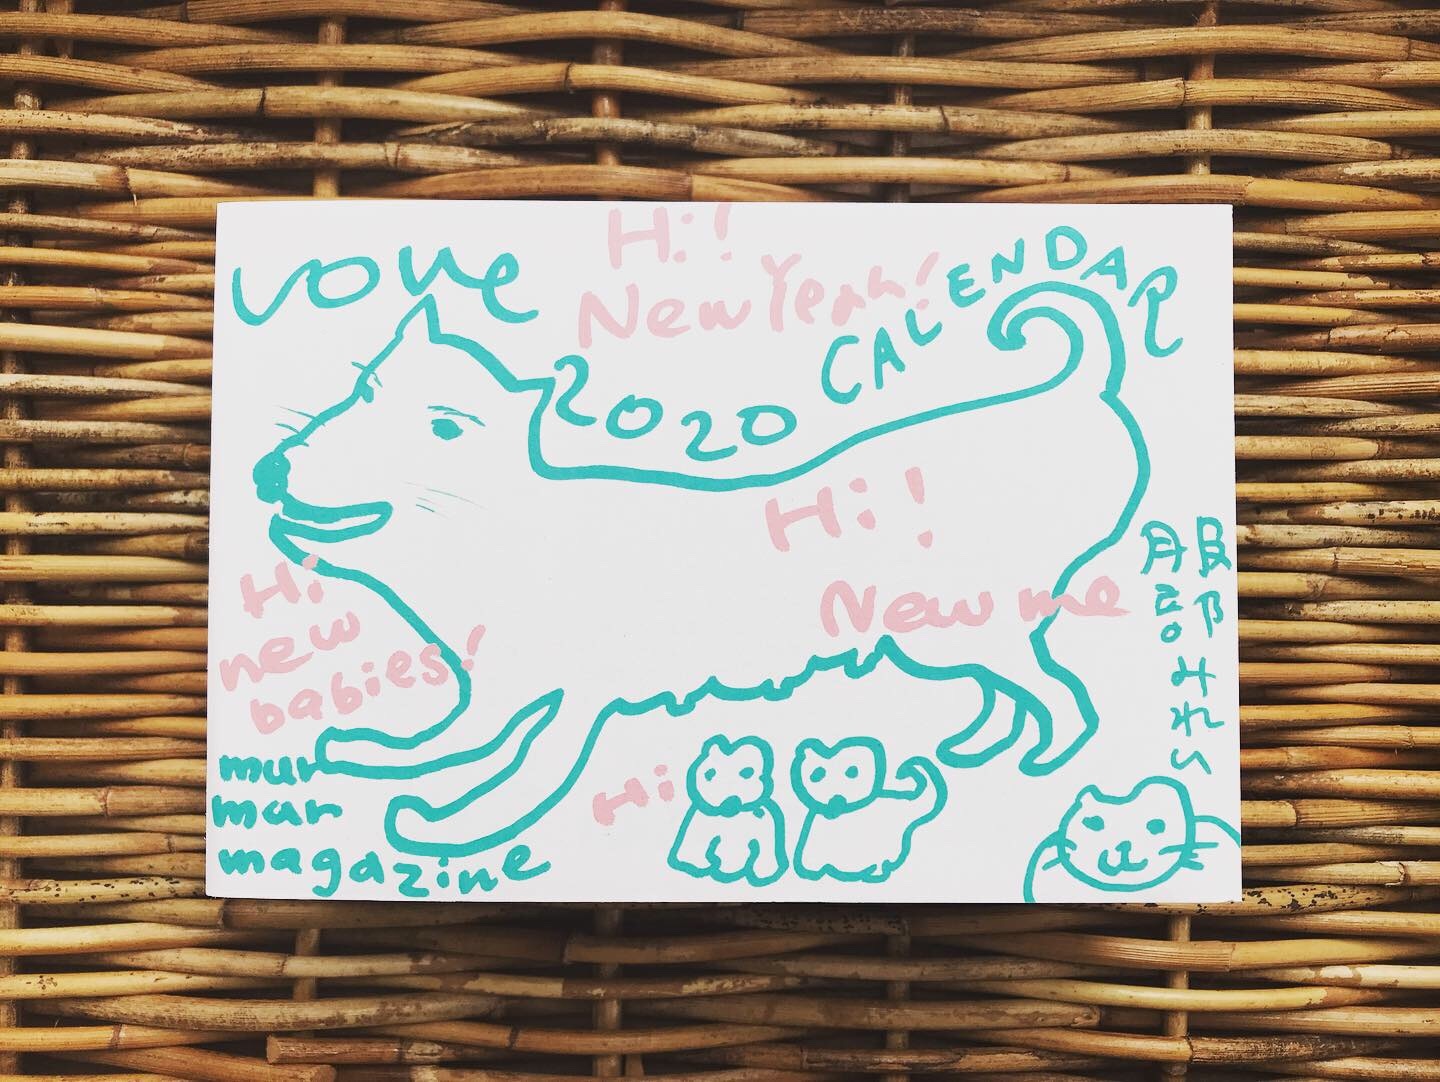 Love
Hi!
New Yeah!
2020 CALENDAR
Hi!
New me
Hi
new
babies!
mur
mur
magazine
Hi
服部みれい